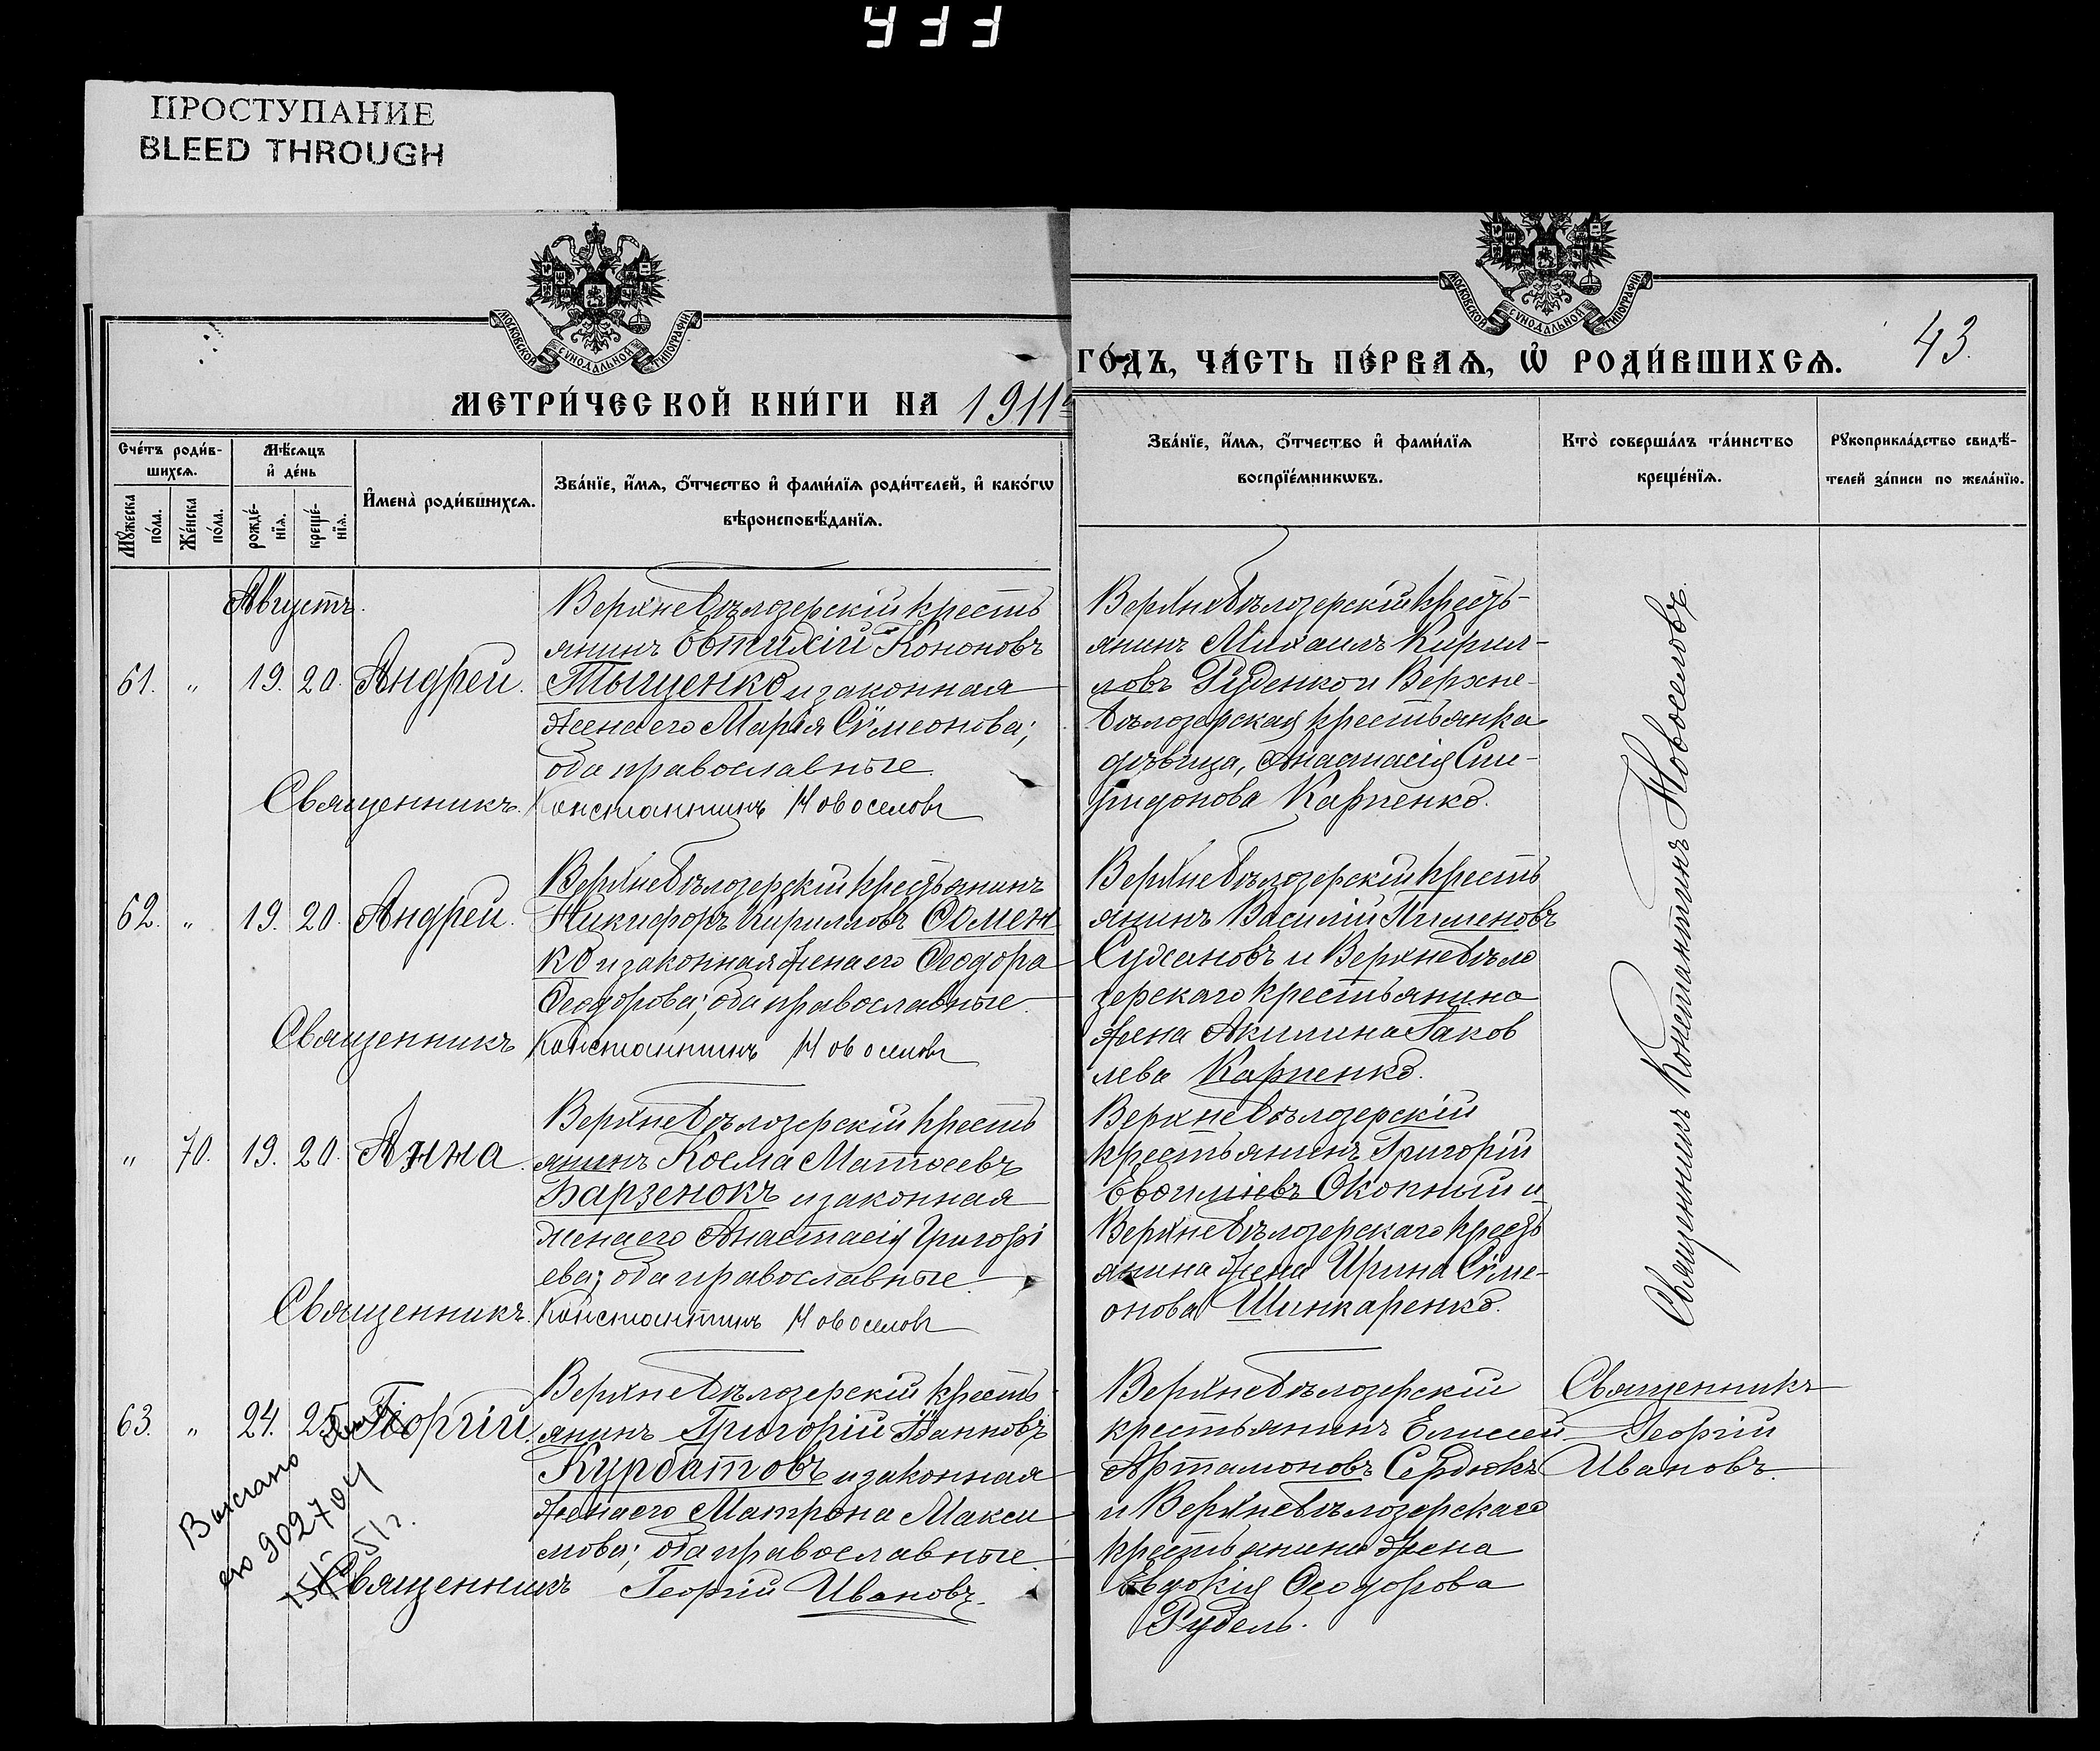 433
ПРОСТУПАНИЕ
BLEED THROUGH
МОСКОВСКОЙ СѴНОДАЛЬНОЙ ТИПОГРАФІИ.
МОСКОВСКОЙ СѴНОДАЛЬНОЙ ТИПОГРАФІИ.
МЕТРИ́ЧЕСКОЙ КНИ́ГИ НА 1911й
ГО́ДЪ, ЧА́СТЬ ПЕ́РВАѦ, Ѡ҆ РОДИ́ВШИХСѦ.
43.
Сче́тъ роди́в-
шихсѧ.
Мꙋ́жеска
по́ла.
Же́нска
по́ла.
Мѣ́сѧцъ
и҆ де́нь
рожде́-
нїѧ.
креще́-
нїѧ.
И҆мена̀ роди́вшихсѧ.
Зва́нїе, и҆́мѧ, ѻ҆́тчество и҆ фами́лїѧ роди́телей, и҆ како́гѡ
вѣроисповѣ́данїѧ.
Зва́нїе, и҆́мѧ, ѻ҆́тчество и҆ фами́лїѧ
воспрїе́мникѡвъ.
Кто̀ соверша́лъ та́инство
креще́нїѧ.
Рꙋкоприкла́дство свидѣ́-
телей за́писи по жела́нїю.
Августъ.
61. „ 19. 20. Андрей.
Верхнебѣлозерскій кресть
янинъ Евтихій Кононовъ
Тыщенко и законная
жена его Марія Сѵмеонова;
оба православные.
Священникъ Константинъ Новоселовъ
Верхнебѣлозерскій кресть-
янинъ Михаилъ Кирил-
ловъ Руденко и Верхне-
бѣлозерская крестьянка
дѣвица, Анастасія Спи-
ридонова Карпенко.
62. „ 19. 20. Андрей.
Верхнебѣлозерскій крестьянинъ
Никифоръ Кирилловъ Ѳомен
ко и законная жена его Ѳеодора
Ѳеодорова; оба православные.
Священникъ Константинъ Новоселовъ
Верхнебѣлозерскій кресть
янинъ Василій Пименовъ
Сухановъ и Верхнебѣло
зерскаго крестьянина
жена Акилина Іаков
лева Карпенко.
„ 70. 19. 20. Анна.
Верхнебѣлозерскій кресть
янинъ Косма Матѳеевъ
Барзенокъ и законная
жена его Анастасія Григорі
ева; оба православные.
Священникъ Константинъ Новоселовъ
Верхнебѣлозерскій
крестьянинъ Григорій
Евѳиміевъ Окопный и
Верхнебѣлозерскаго кресть
янина жена Ирина Сѵме-
онова Шинкаренко.
Священникъ Константинъ Новоселовъ.
63. „ 24. 25. Георгій.
Верхнебѣлозерскій кресть-
янинъ Григорій Іоанновъ
Курбатовъ и законная
жена его Матрона Макси
мова; оба православные
Священникъ Георгій Ивановъ.
Верхнебѣлозерскій
крестьянинъ Елисей
Артамоновъ Сердюкъ
и Верхнебѣлозерскаго
крестьянина жена
Евдокія Ѳеодорова
Рудель.
Священникъ
Георгій
Ивановъ.
Выслано
902704
51г.